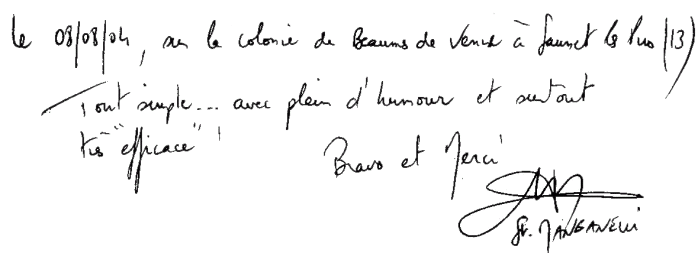 Le 08/08/04, sur la colonie de Beaumes de Venise à Sausset les Pins (13)
Tout simple... avec plein d'humour et surtout
très "efficace" !
Bravo et Merci
MANGANELLI